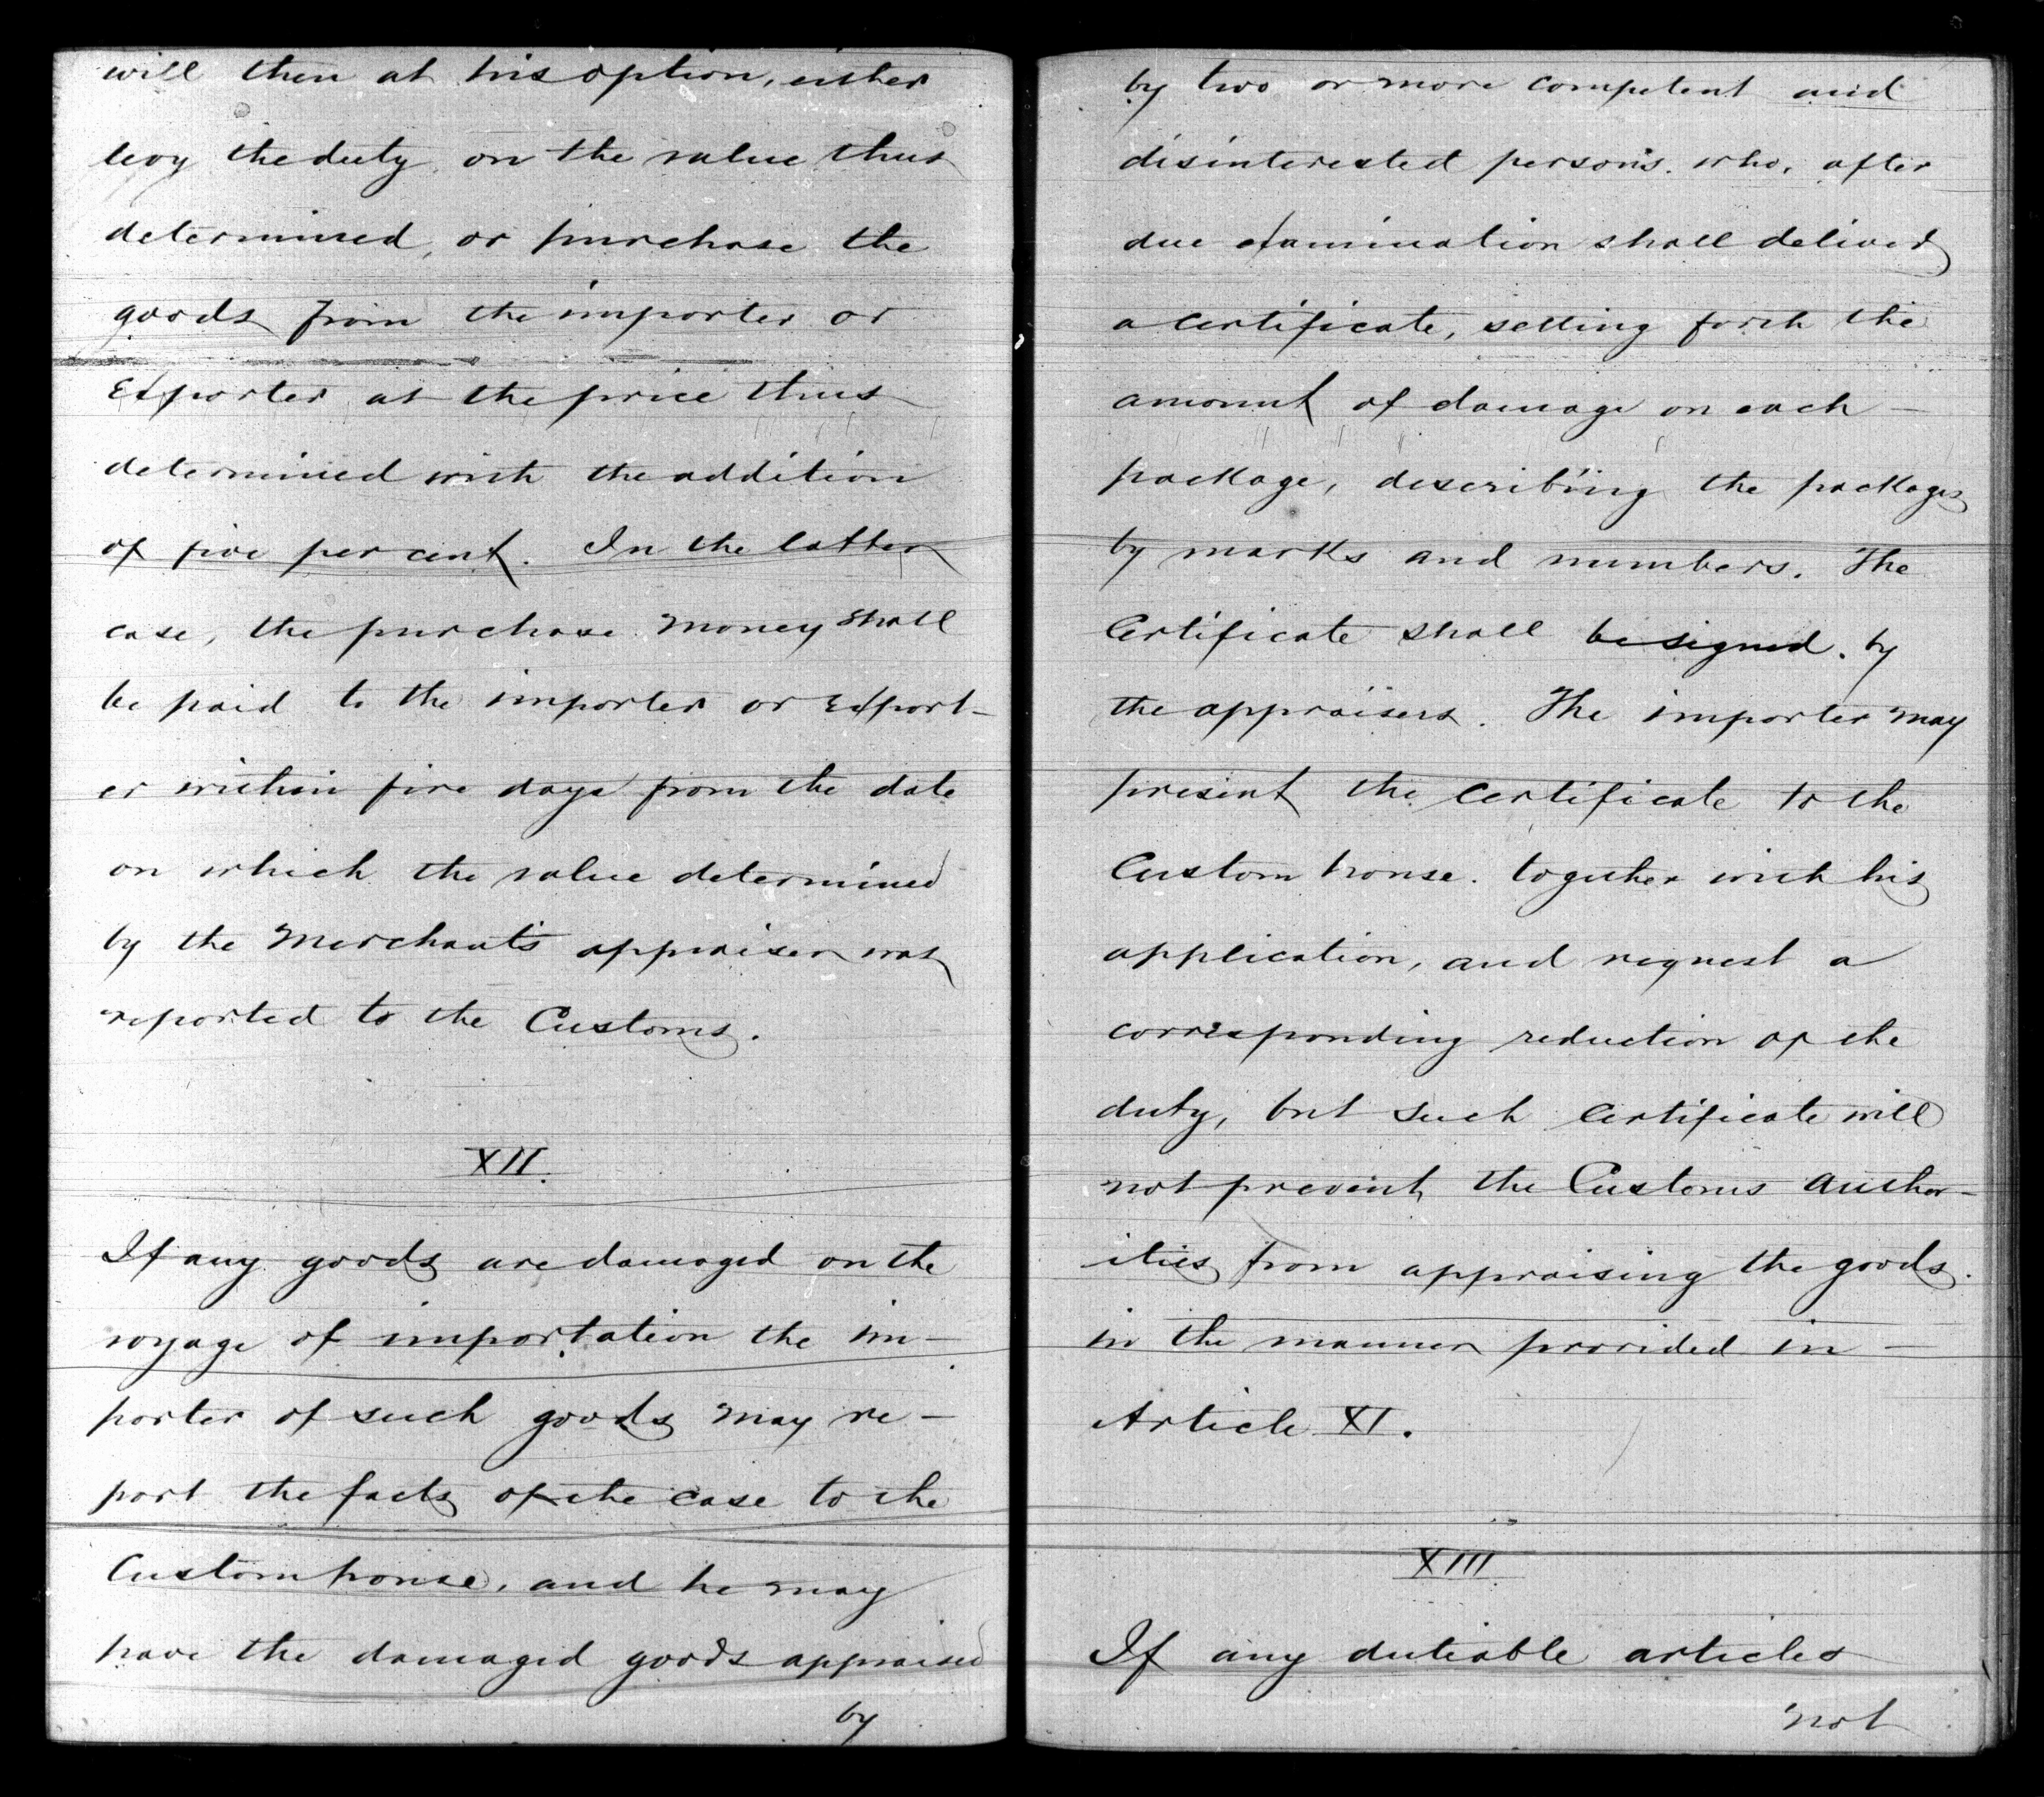 will then at his option, either
levy the duty on the value thus
determined, or purchase the
goods from the importer or
Exporter at the price thus
determined with the addition
of five per cent. In the latter
case, the purchase money shall
be paid to the importer or Export-
er within five days from the date
on which the value determined
by the Merchant's appraiser was
reported to the Customs.
XII.
If any goods are damaged on the
voyage of importation the im-
porter of such goods may re-
port the facts of the case to the
Custom house, and he may
have the damaged goods appraised
by
by two or more competent and
disinterested persons. who, after
due examination shall deliver
a certificate, setting forth the
amount of damage on each
package, describing the packages
by marks and numbers. The
Certificate shall be signed. by
the appraisers. The importer may
present the certificate to the
Custom house. together with his
application, and request a
corresponding reduction of the
duty, but such certificate will
not prevent the Customs author-
ities from appraising the goods.
in the manner provided in
Article XI.
XIII
If any dutiable articles
not